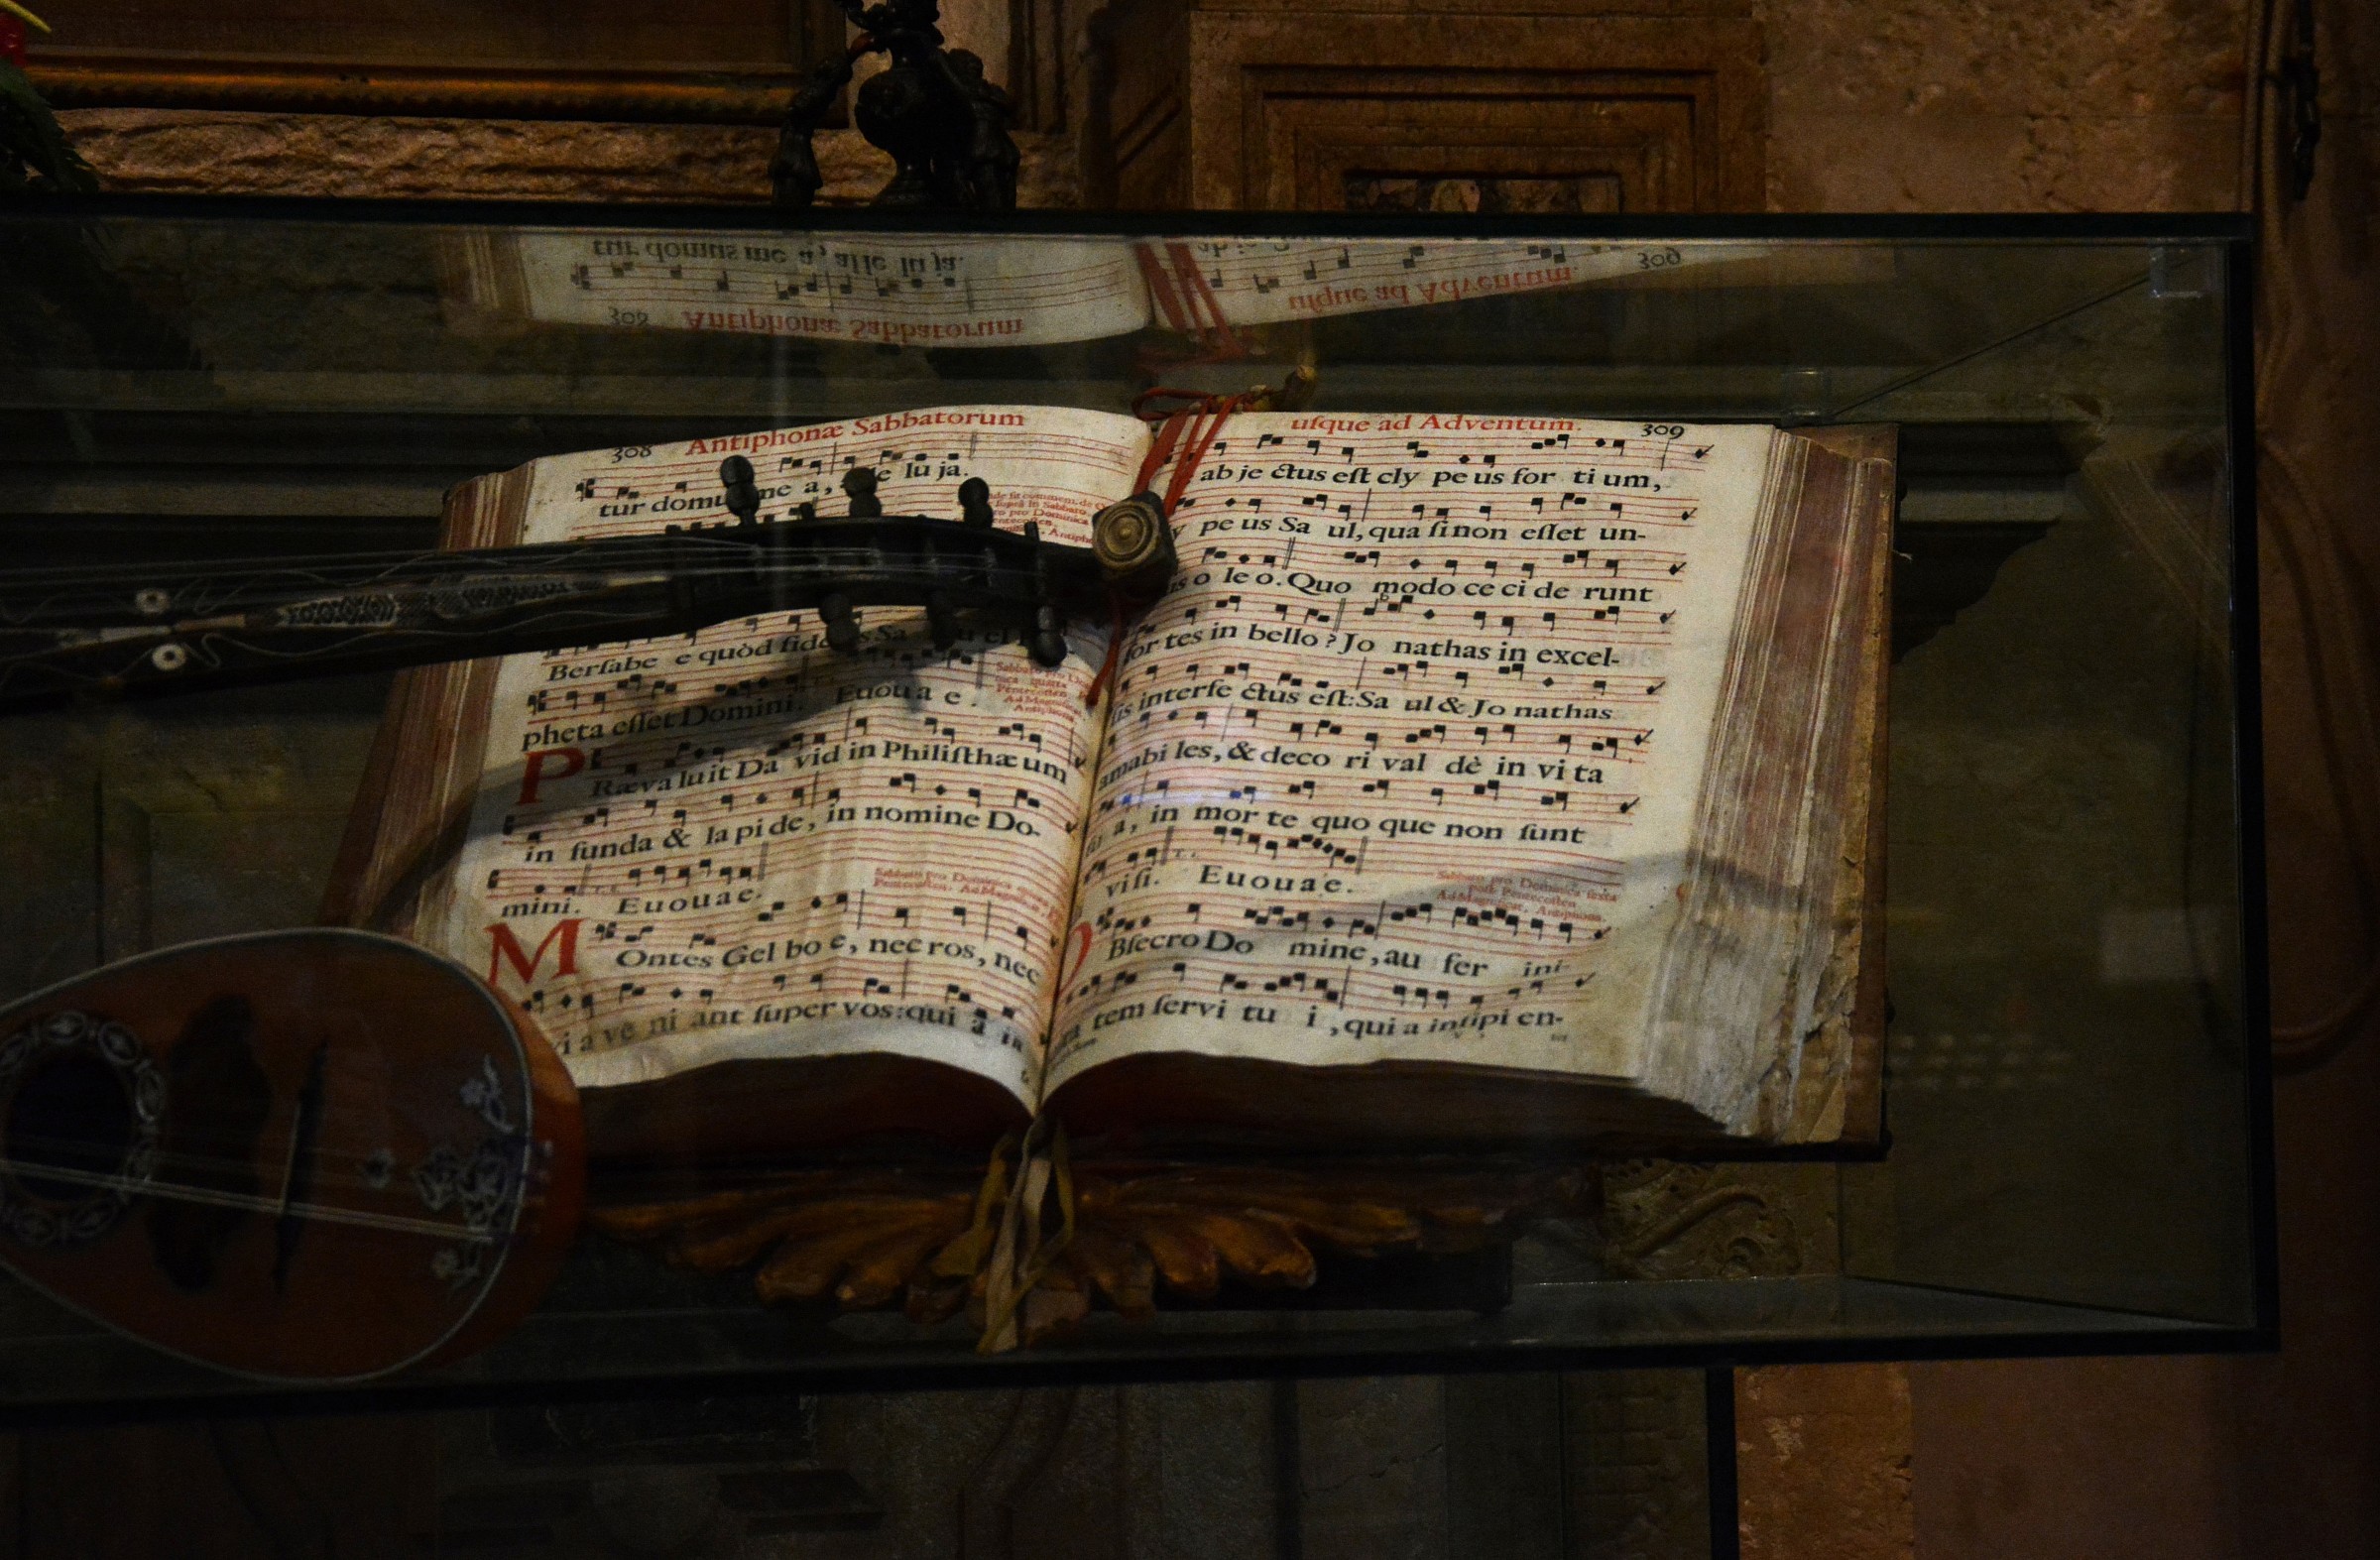 308 Antiphonæ Sabbatorum
tur domus me a, al le lu ja.
Berſabe e quòd fide
pheta eſſet Domini. Euou a e.
PRæva luit Da vid in Philiſthæum
in funda & la pi de, in nomine Do-
mini. Euouae.
Sabbato pro Dominica
Pentecoſten. Ad Magnificat.
MOntes Gel bo e, nec ros, nec
a ve ni ant ſuper vos: qui à in
uſque ad Adventum. 309
ab je ctus eſt cly pe us for ti um,
pe us Sa ul, qua ſi non eſſet un-
o le o. Quo modo ce ci de runt
for tes in bello? Jo nathas in excel-
ſis interfe ctus eſt: Sa ul & Jo nathas
amabi les, & deco ri val dè in vi ta
ſu a, in mor te quo que non ſunt
viſi. Euouae.
Sabbato pro Dominica ſexta
poſt Pentecoſten
Ad Magnificat. Antiphona.
Bſecro Do mine, au fer ini-
tem ſervi tu i, qui a inſipi en-